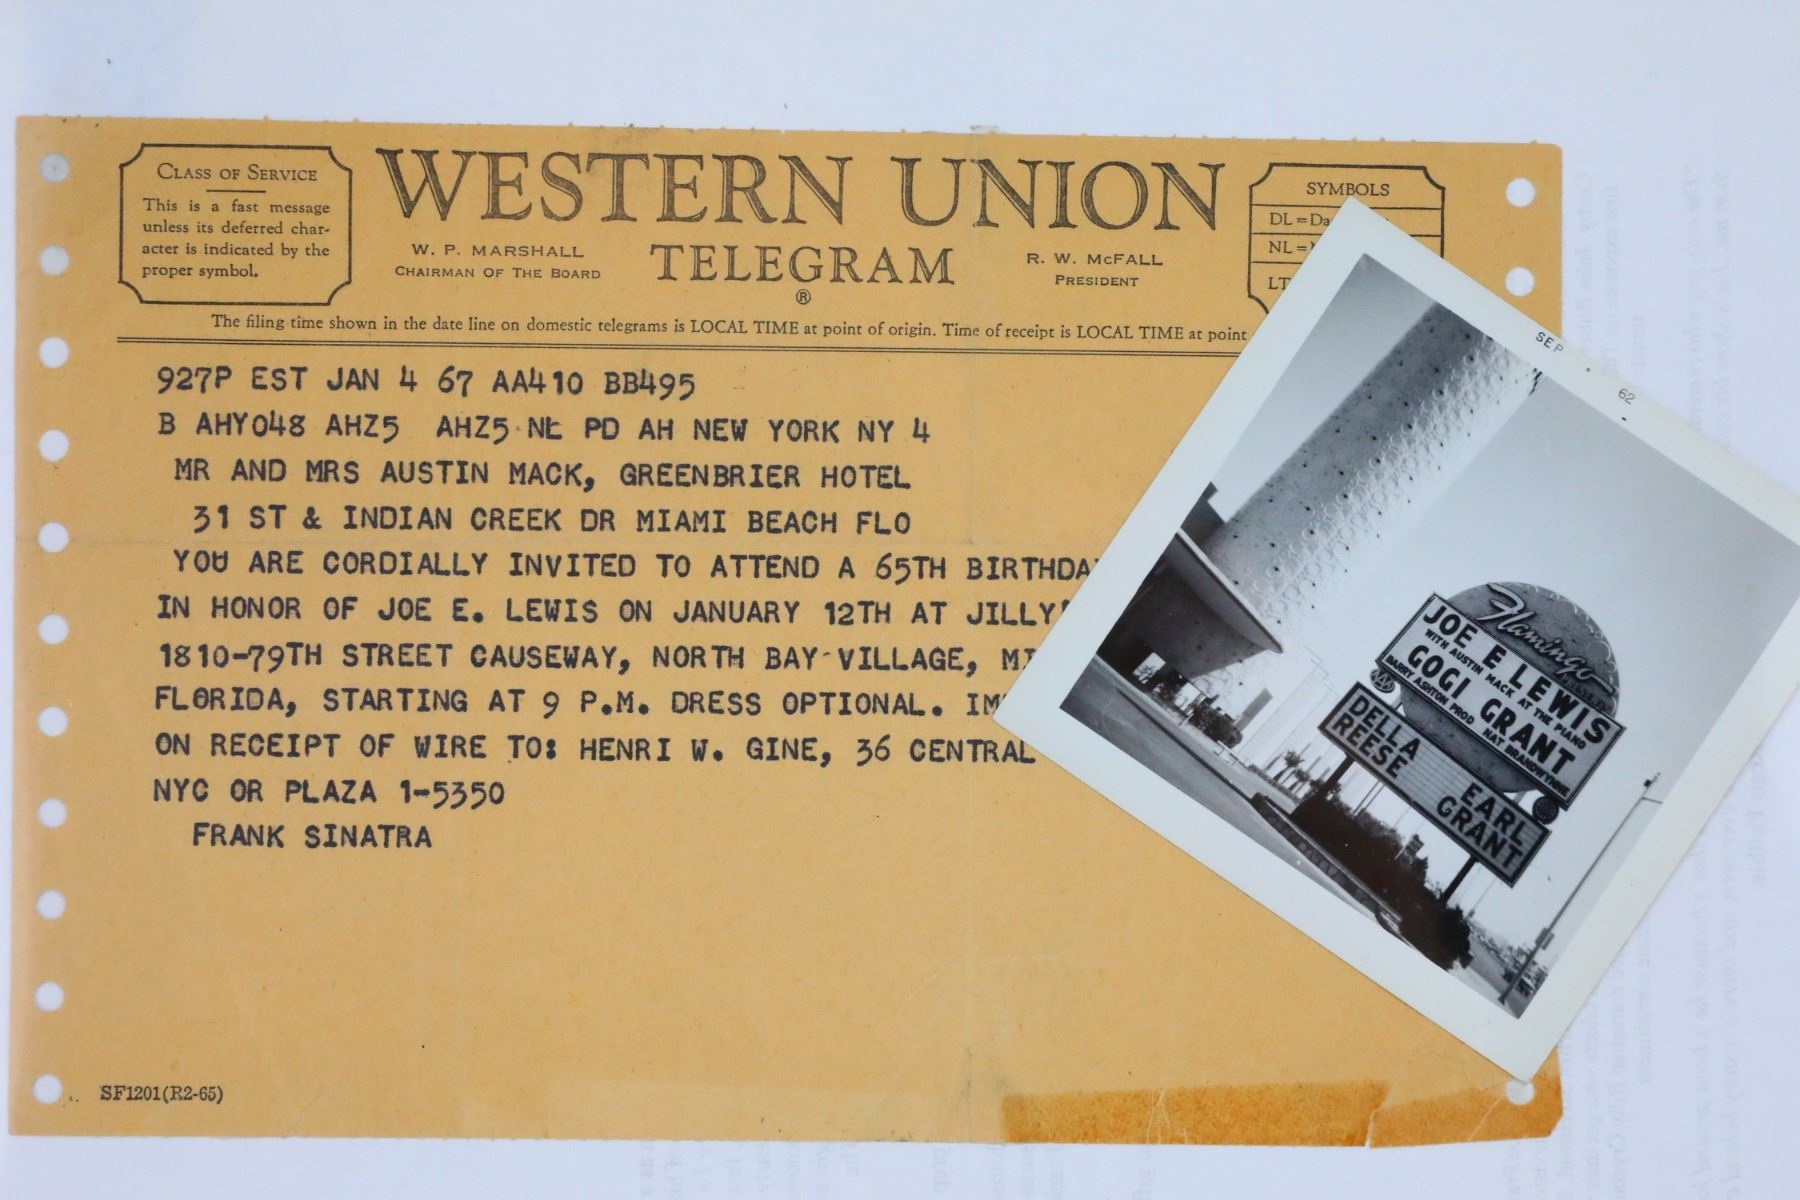 CLASS OF SERVICE
This is a fast message
unless its deferred char-
acter is indicated by the
proper symbol.
WESTERN UNION
TELEGRAM
®
W. P. MARSHALL
CHAIRMAN OF THE BOARD
R. W. McFALL
PRESIDENT
SYMBOLS
DL=Da
NL=
LT
The filing time shown in the date line on domestic telegrams is LOCAL TIME at point of origin. Time of receipt is LOCAL TIME at point
927P EST JAN 4 67 AA410 BB495
B AHY048 AHZ5 AHZ5 NL PD AH NEW YORK NY 4
MR AND MRS AUSTIN MACK, GREENBRIER HOTEL
31 ST & INDIAN CREEK DR MIAMI BEACH FLO
YOU ARE CORDIALLY INVITED TO ATTEND A 65TH BIRTHDA
IN HONOR OF JOE E. LEWIS ON JANUARY 12TH AT JILLY'
1810-79TH STREET CAUSEWAY, NORTH BAY VILLAGE, MI
FLORIDA, STARTING AT 9 P.M. DRESS OPTIONAL. IM
ON RECEIPT OF WIRE TO: HENRI W. GINE, 36 CENTRAL
NYC OR PLAZA 1-5350
FRANK SINATRA
SF1201(R2-65)
SEP 62
Flamingo
JOE E LEWIS
WITH AUSTIN MACK AT THE PIANO
GOGI GRANT
BARRY ASHTON PROD NAT BRANDWYNNE
AAA
DELLA
REESE
EARL
GRANT